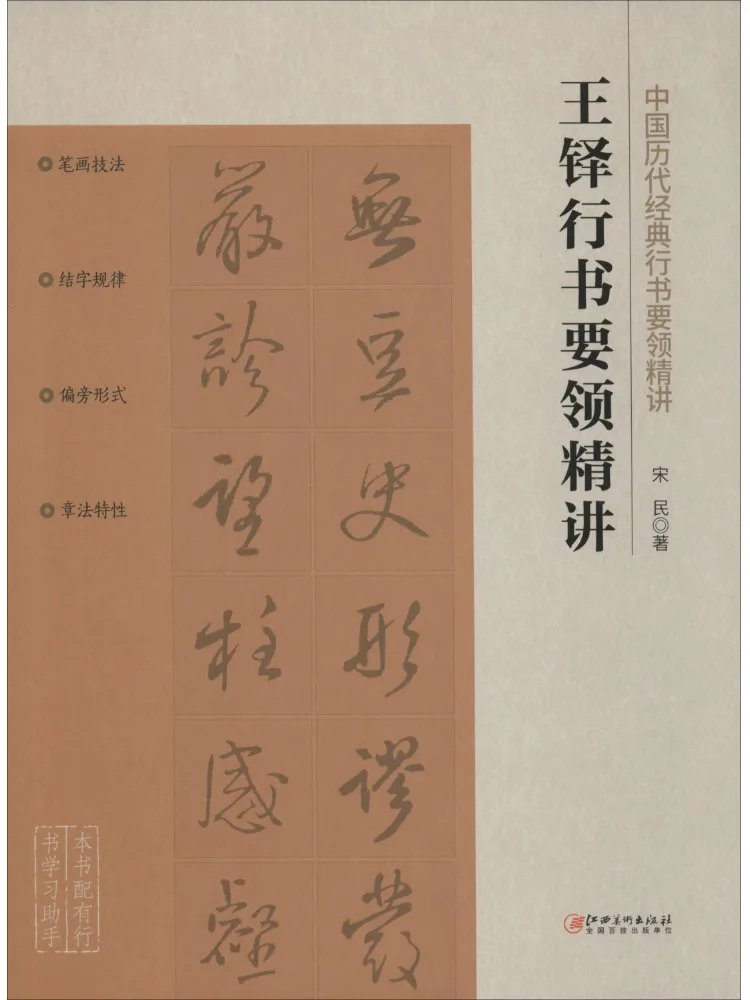 中国历代经典行书要领精讲
王铎行书要领精讲
宋 民◎著
笔画技法
结字规律
偏旁形式
章法特性
無
豆
史
形
謬
發
嚴
診
望
柱
感
本书配有行
书学习助手
江西美术出版社
全国百佳出版单位